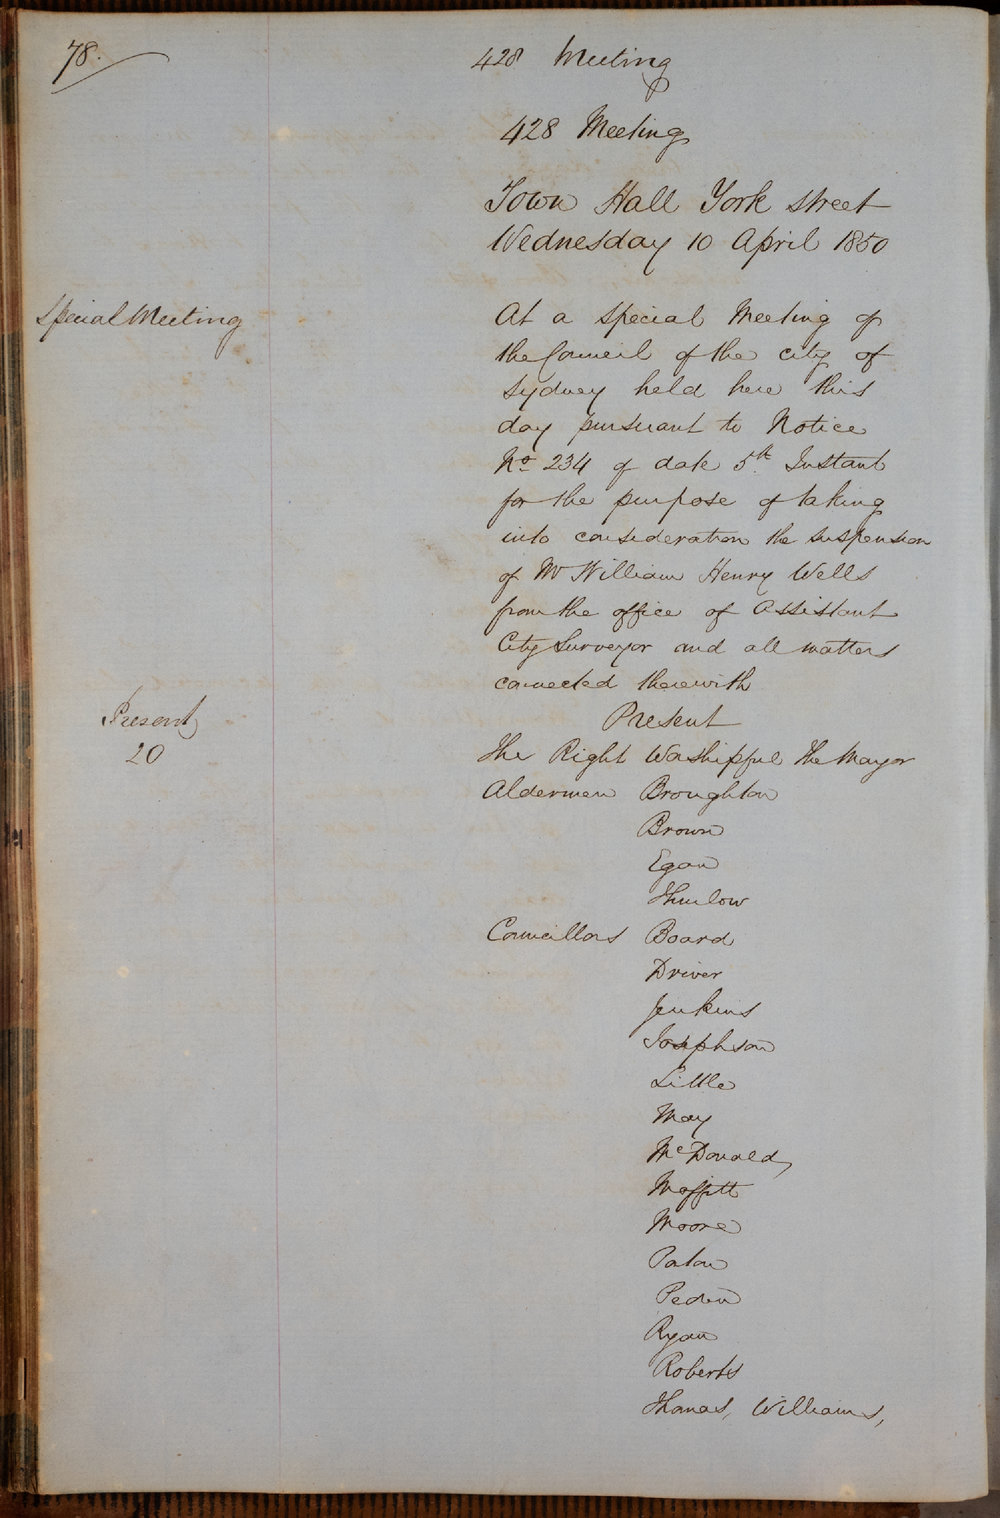 78.
428 Meeting
428 Meeting
Town Hall York street
Wednesday 10 April 1850
Special Meeting
At a special Meeting of
the Council of the city of
Sydney held here this
day pursuant to Notice
No 234 of date 5th Instant
for the purpose of taking
into consideration the suspension
of Mr William Henry Wells
from the office of Assistant
City Surveyor and all matters
connected therewith
Present
20
Present
The Right Worshipful the Mayor
Aldermen Broughton
Brown
Egan
Thurlow
Councillors Board
Driver
Jenkins
Josephson
Little
May
McDonald,
Moffitt
Moore
Paton
Peden
Ryan
Roberts
Thomas, Williams,